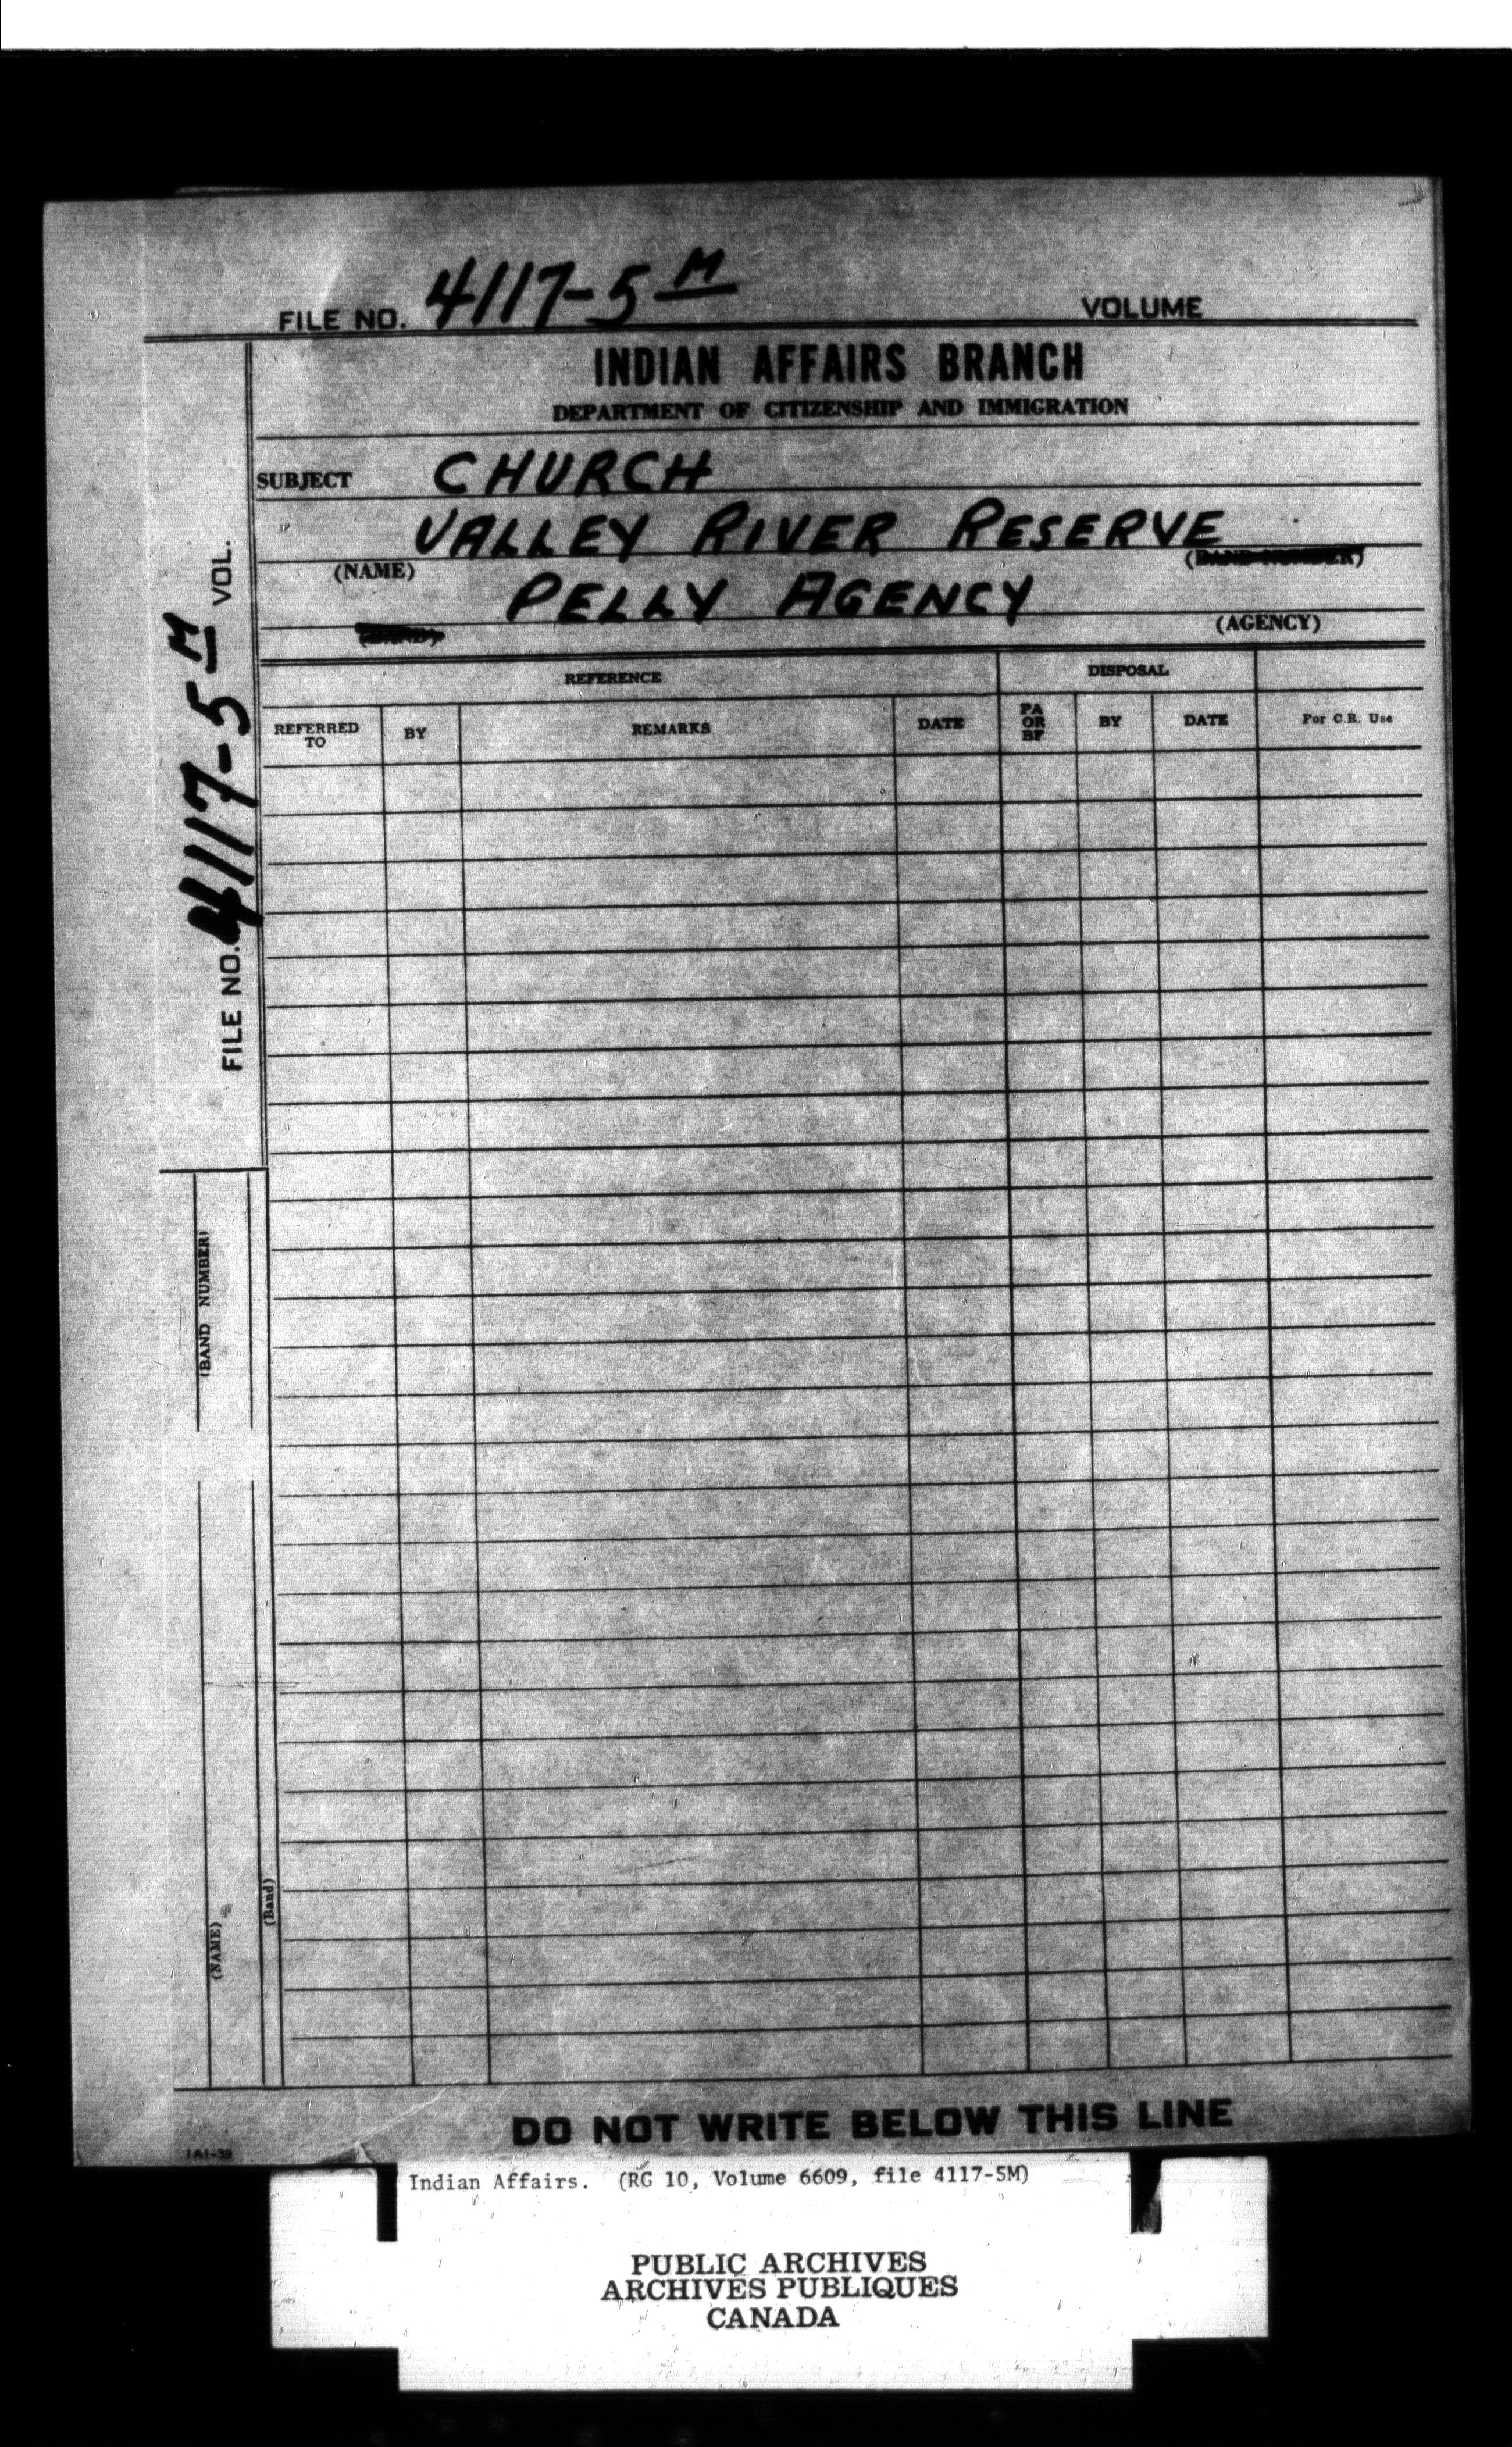 FILE NO. 4117-5 M VOLUME
INDIAN AFFAIRS BRANCH
DEPARTMENT OF CITIZENSHIP AND IMMIGRATION
SUBJECT CHURCH
VALLEY RIVER RESERVE
(NAME) (BAND NUMBER)
PELLY AGENCY
(BAND) (AGENCY)
REFERENCE DISPOSAL
REFERRED TO BY REMARKS DATE PA OR BF BY DATE For C.R. Use
FILE NO. 4117-5 M VOL.
(BAND NUMBER)
(NAME)
(Band)
DO NOT WRITE BELOW THIS LINE
IAI-39
Indian Affairs. (RG 10, Volume 6609, file 4117-5M)
PUBLIC ARCHIVES
ARCHIVES PUBLIQUES
CANADA